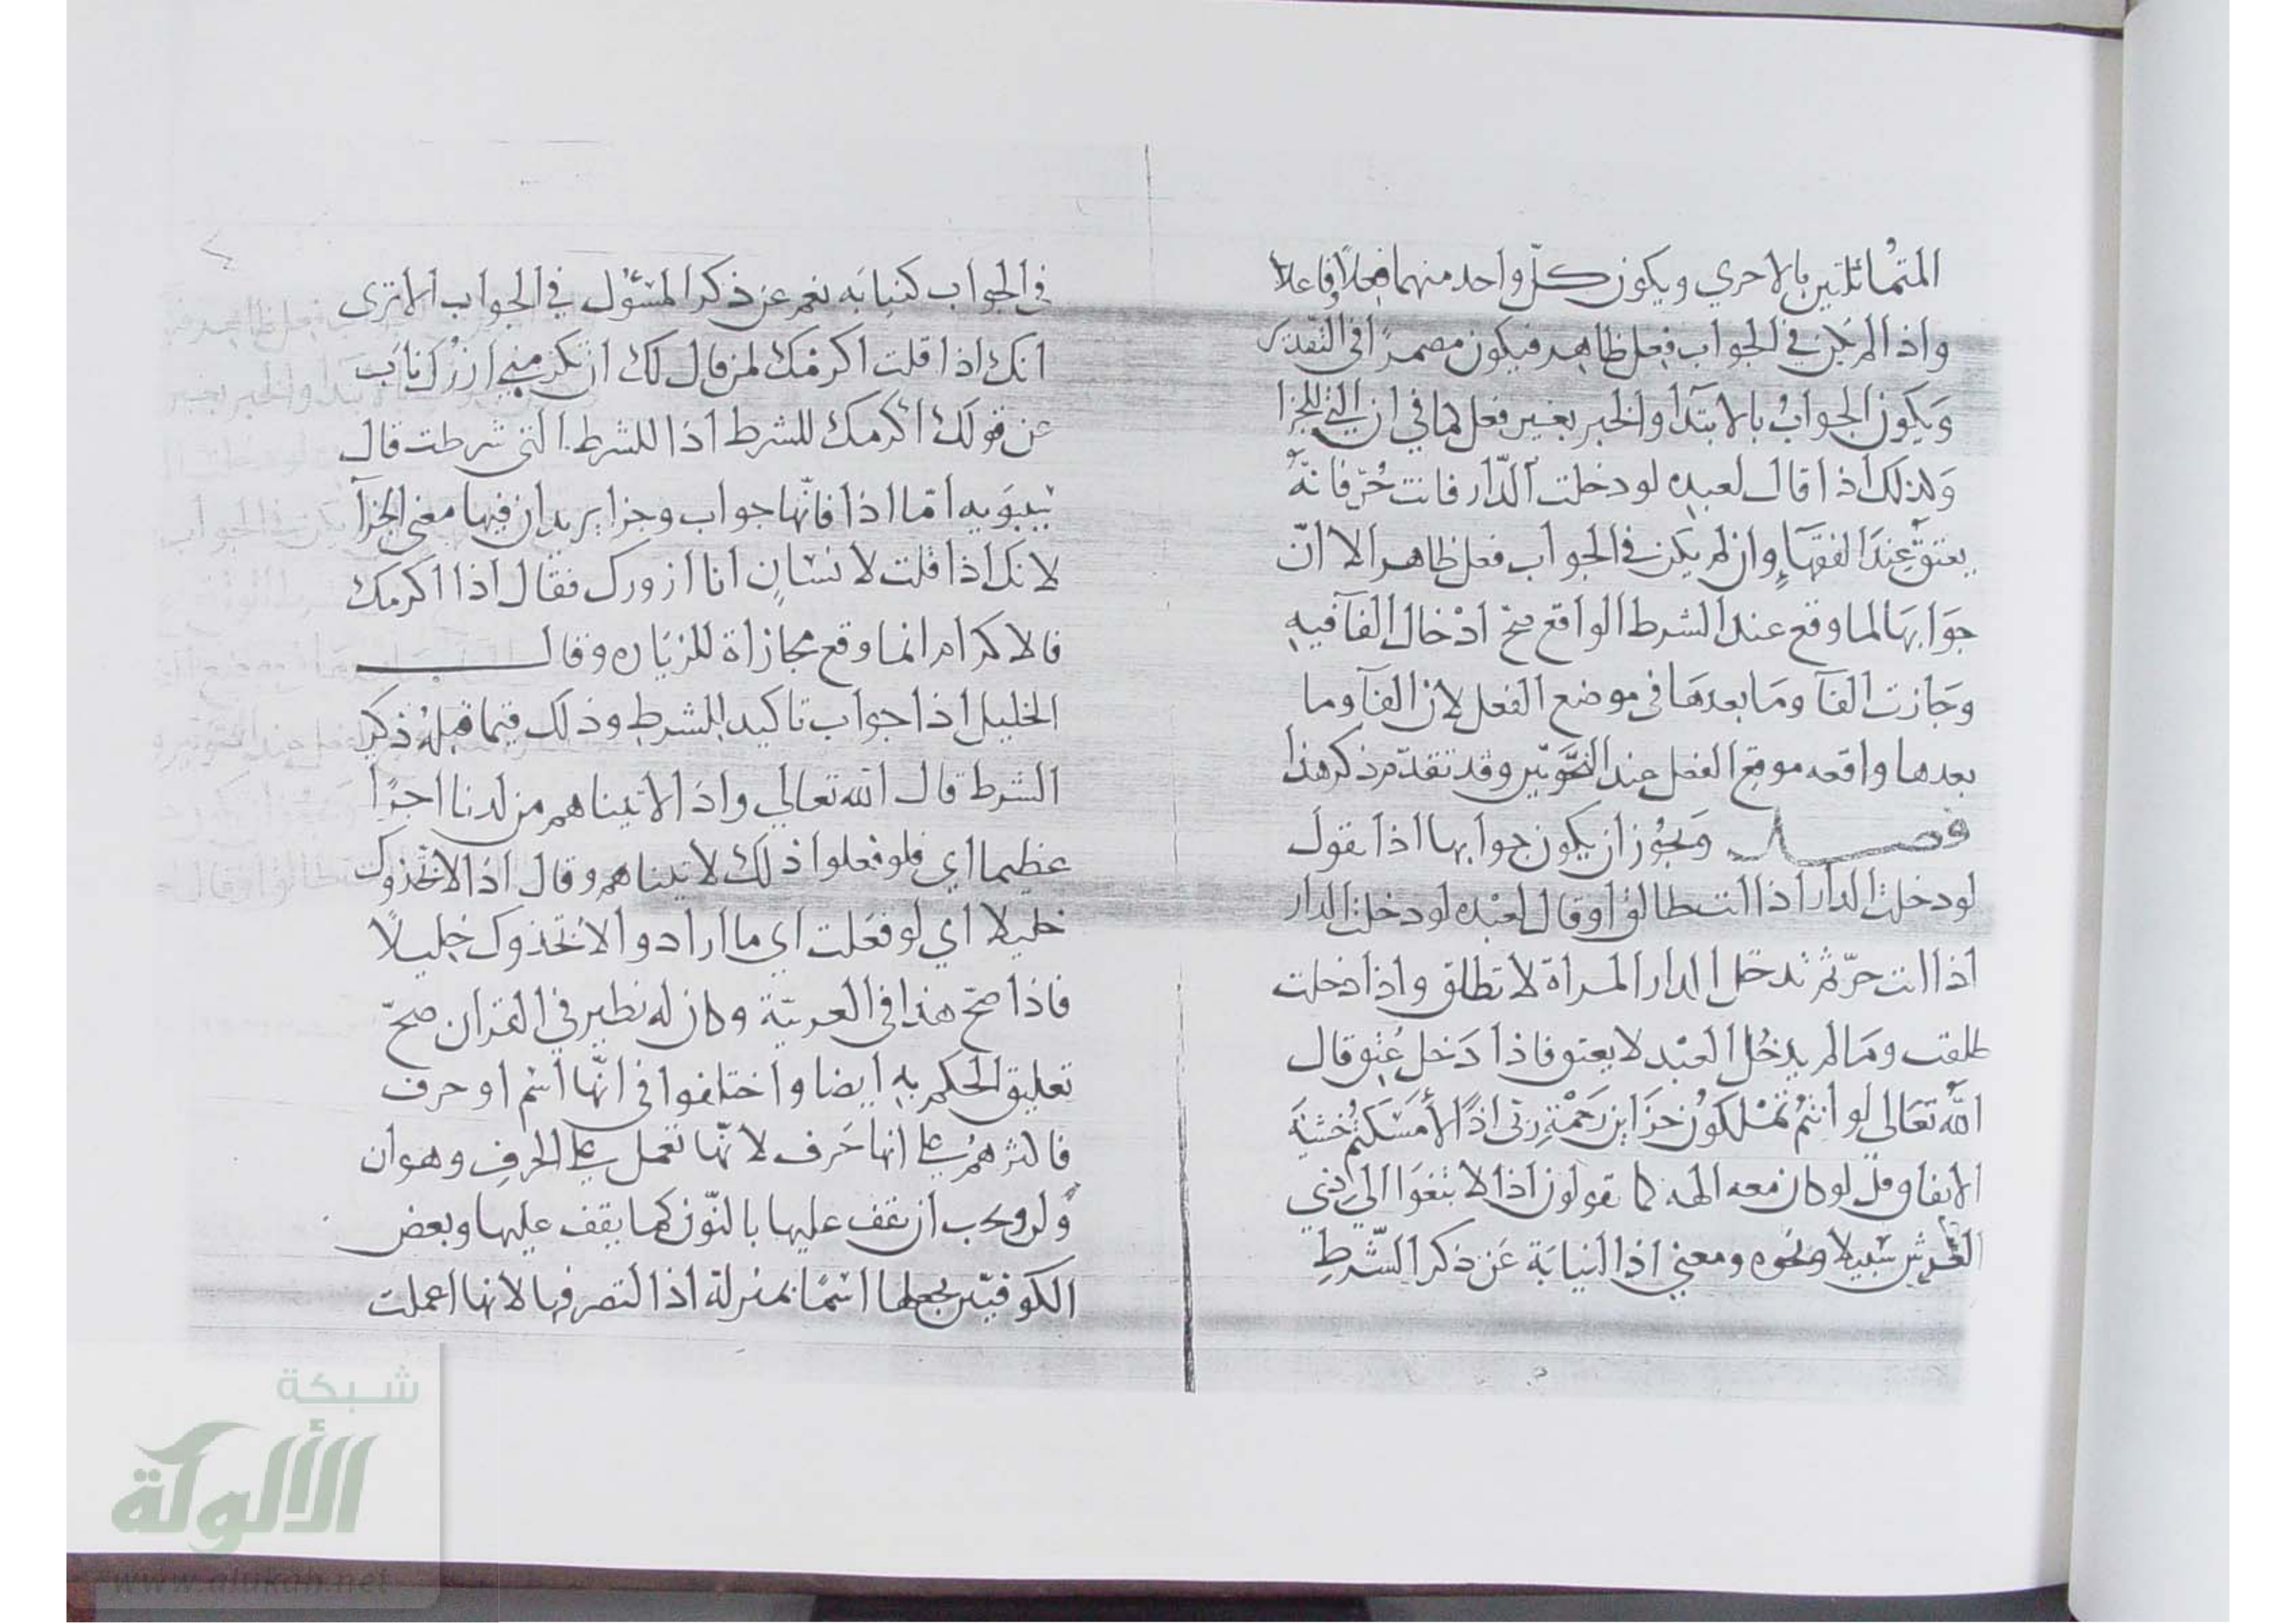 المتماثلتين بالاخري ويكون كلّ واحد منهما فعلاً وفاعلا
واذا لم يكن في الجواب فعل ظاهر فيكون مضمرًا في التقدير
وَيكون الجوابُ بالابتدآ والخبر بغير فعل كما في ان التي للجزا
وَلذلك اذا قال لعبده لو دخلت الدّار فانت حُرّ فانّهُ
يعتق عندَ الفقهآءِ وان لم يكن في الجواب فعل ظاهر الا انّ
جوَابهَا لما وقع عند الشرط الواقع صحّ ادْخال الفآ فيهِ
وجَازت الفآ ومَا بعدهَا في موضع الفعل لان الفآ وما
بعدها واقعه موقع الفعل عند النحَّويّين وقد تقدّم ذكر هذا
فصـــل وَيجُوز ان يكون جوابها اذا تقول
لو دخلت الدار اذا انت طالق او قال لعبْده لو دخلت الدار
اذا انت حرّ ثم تدخل الدار المراة لا تطلق واذا دخلت
طلقت ومَا لم يدخُل العبْد لا يعتق فاذا دَخل عُتِق قال
اللهُ تعَالى لو انتُم تمْلكوُن خزَاين رَحمْةِ ربى اذًا لأمْسَكتُم خشيَة
الانفاق وقل لو كان معه الهه كما تقولون اذا لابتغَوا الي ذي
العَرش سَبيلا ونحوه ومعني اذا النيابَة عَن ذكر الشّرطِ
في الجواب كنيابَه نعم عن ذكر المسْئول في الجواب الا ترى
انك اذا قلت اكرمْك لمن قال لك ان تكرمني ازرْك نابَ
عن قولك اكرمك للشرط اذا للشرط التي شرطت قال
سيبوَيه امّا اذا فانّها جواب وجزا يريد ان فيها معني الجزآ
لانك اذا قلت لانسانِ انا ازورك فقال اذا اكرمك
فالاكرام انما وقع مجازاة للزيَاره وقالـــــ
الخليل اذا جواب تاكيد للشرط وذلك فيما قبلهُ ذكر
الشرط قال الله تعالي واذا لاتيناهم من لدنا اجرًا
عظيما اي فلو فعلوا ذلك لاتيناهم وقال اذا لاتّخذوك
خليلا اي لو فعَلت اي ما ارادوا لاتّخذوك خليلاً
فاذا صحّ هذا في العربيّة وكان له نظير في القران صحّ
تعليق الحكم بهِ ايضا واختلفوا في انّها اسْم او حرف
فاكثرهمُ على انها حَرف لانّها تعمل عمل الحرفِ وهو ان
ولن ويجب ان نقف عليها بالنّون كما يقف عليها وبعض
الكوفيّين يجعلها اسْمًا بمنزلة اذا لتصرفها لانها اعملت
شبكة
الألوكة
www.alukah.net